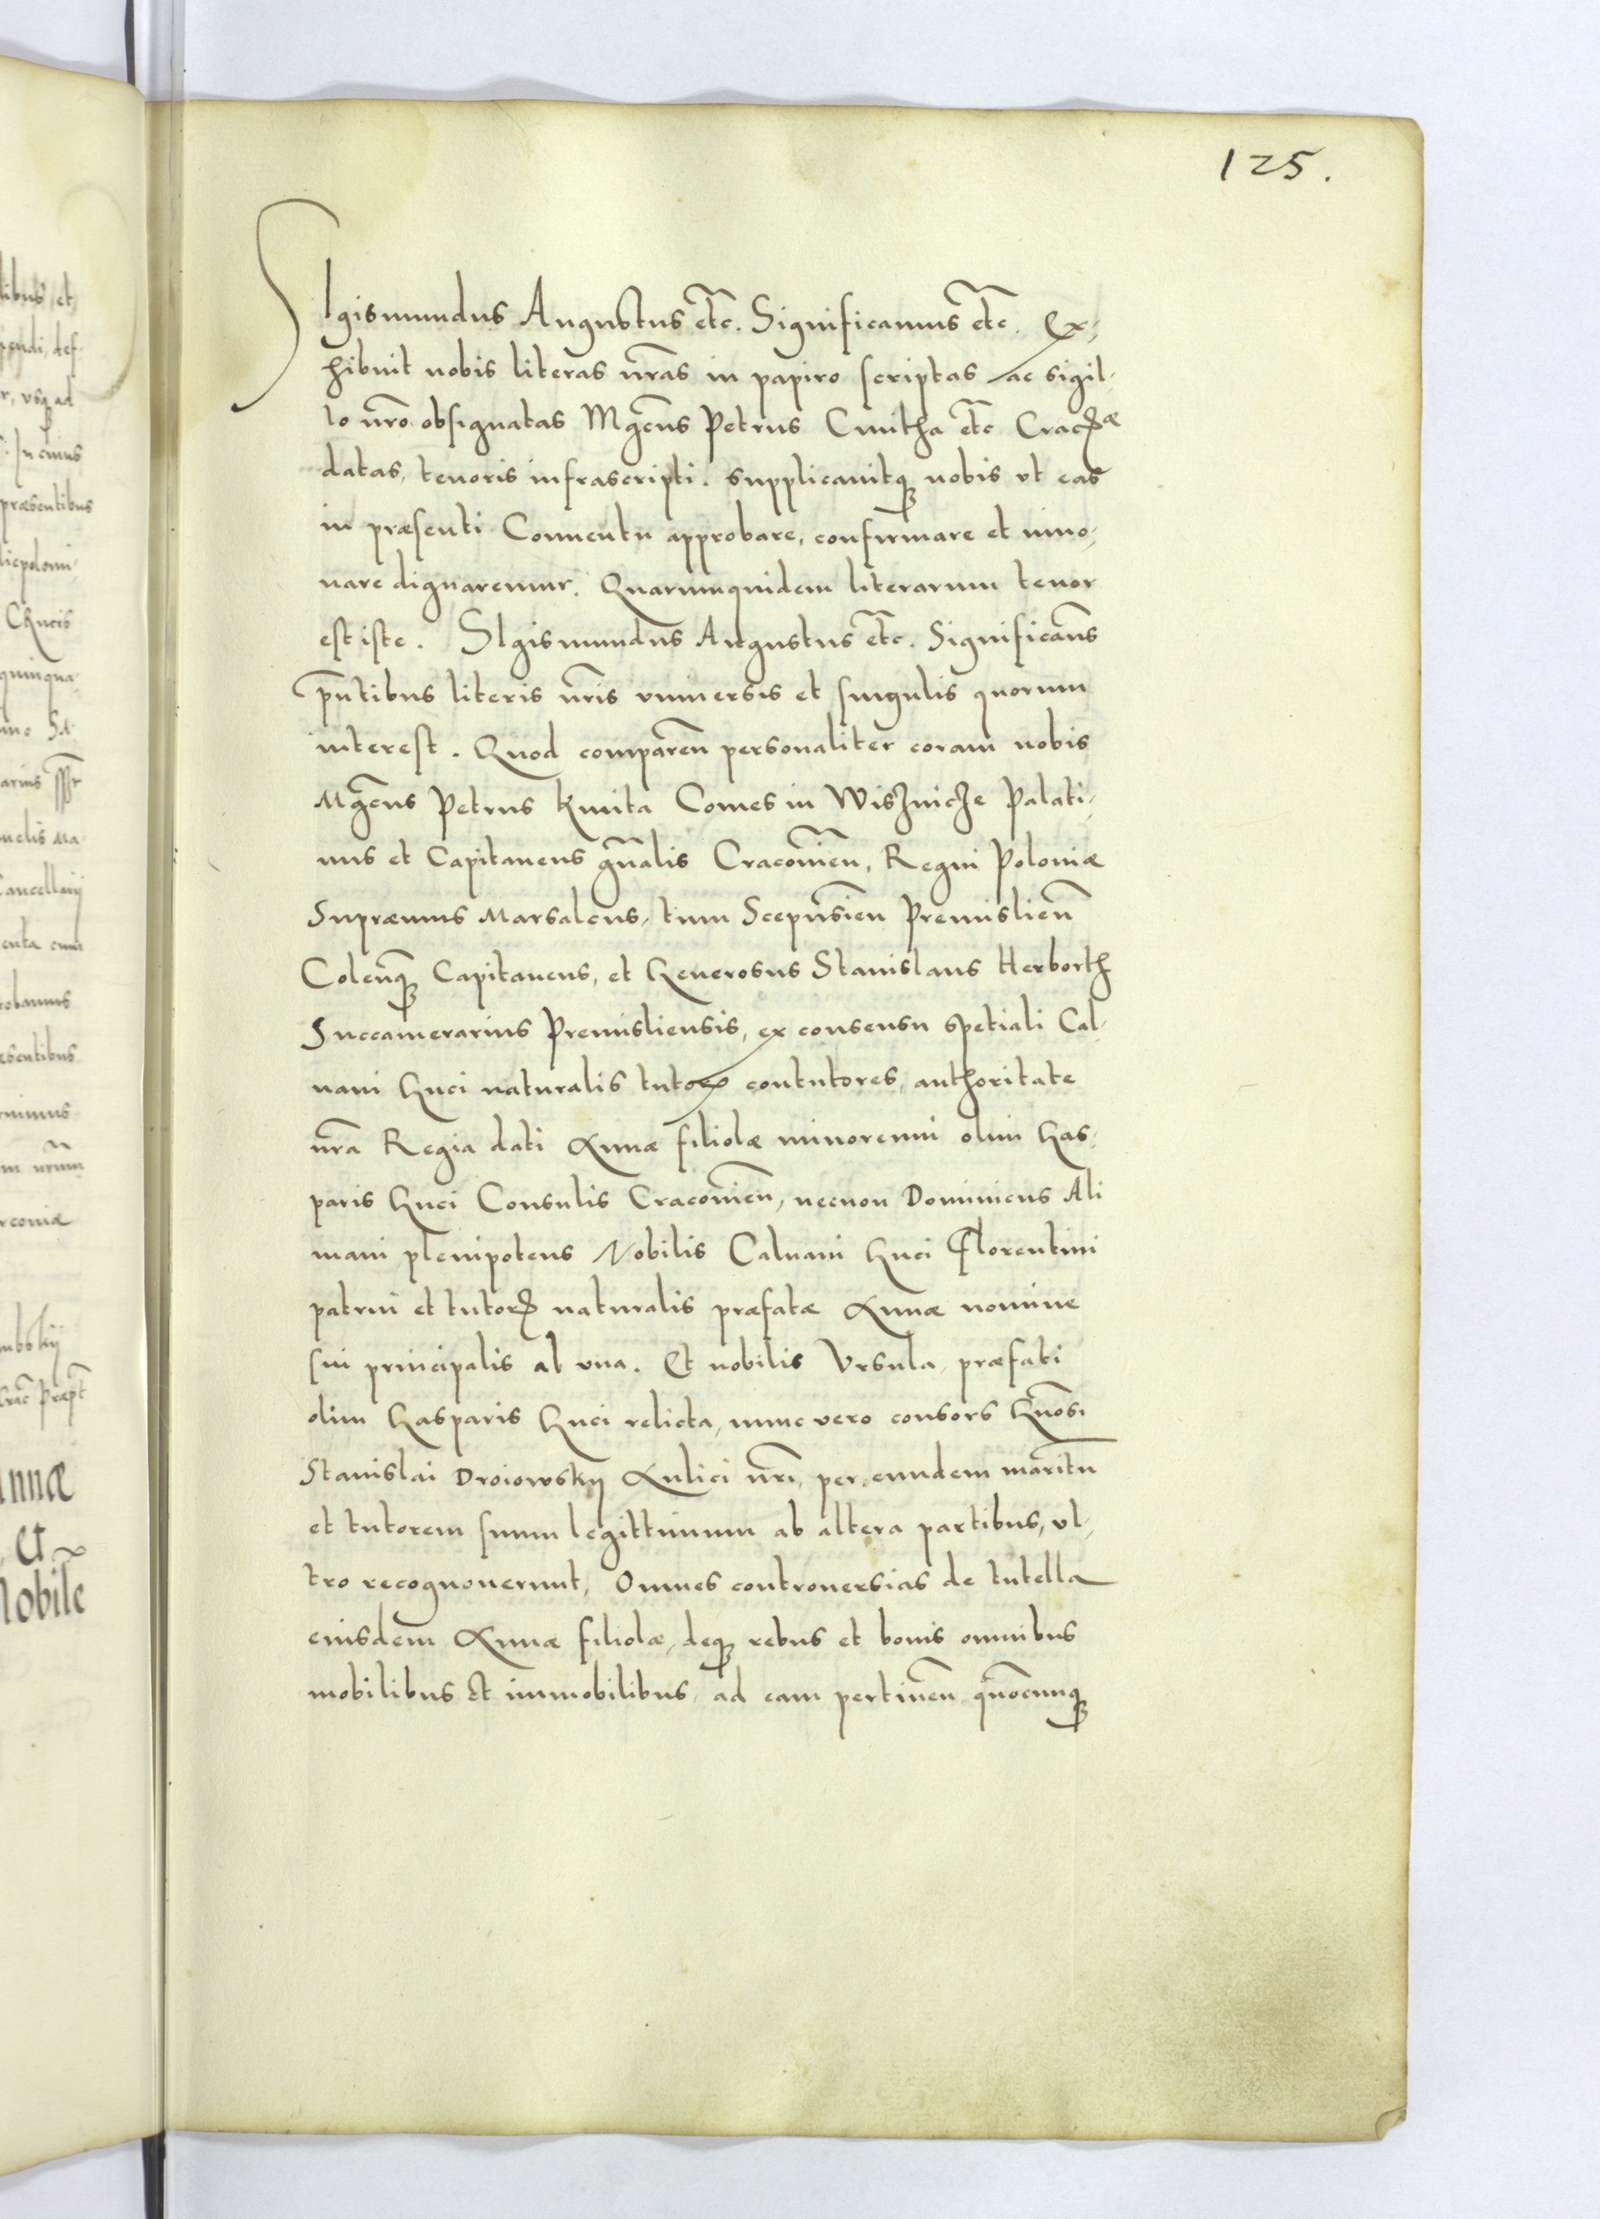 125.
SIgismundus Augustus etc. Significamus etc. Ex-
hibuit nobis literas nr̃as in papiro scriptas ac sigil-
lo nr̃o obsignatas Mg̃cus Petrus Cmitha etc Crac
datas, tenoris infrascripti. supplicauitq; nobis vt eas
in præsenti Conuentu approbare, confirmare et inno-
uare dignaremur. Quarumquidem literarum tenor
est iste. SIgismundus Augustus etc. Significam̃s
pñtibus literis nr̃is vniuersis et singulis quorum
interest. Quod compareñ personaliter coram nobis
Mg̃cus Petrus Kmita Comes in Wisznicze Palati-
nus et Capitaneus gñalis Cracouieñ, Regni Poloniæ
Supræmus Marsalcus, tum Scepusieñ Premislieñ
Coleñq; Capitaneus, et Generosus Stanislaus Herborth
Succamerarius Premisliensis, ex consensu spetiali Cal-
uani Guci naturalis tutoris contutores, authoritate
nr̃a Regia dati Annæ filiolæ minorenni olim Gas-
paris Guci Consulis Cracouieñ, necnon Dominicus Ali
mani plenipotens Nobilis Caluani Guci Florentini
patrui et tutoris naturalis præfatæ Annæ nomine
sui principalis ab vna. Et nobilis Vrsula, præfati
olim Gasparis Guci relicta, nunc vero consors Gñosi
Stanislai Droiowskij Aulici nr̃i, per eundem maritũ
et tutorem suum legittimum ab altera partibus, vl-
tro recognouerunt, Omnes controuersias de tutella
eiusdem Annæ filiolæ, deq; rebus et bonis omnibus
mobilibus et immobilibus, ad eam pertineñ quõcunq;